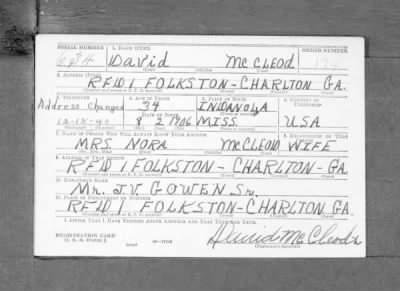 SERIAL NUMBER 1. NAME (Print) ORDER NUMBER
634 David McCleod 174
2. ADDRESS (Print)
RFD 1 FOLKSTON-CHARLTON GA.
3. TELEPHONE 4. AGE IN YEARS 5. PLACE OF BIRTH 6. COUNTRY OF CITIZENSHIP
Address Changed 34 INDANOLA
DATE OF BIRTH
12-15-40 8 2 1906 MISS. USA
7. NAME OF PERSON WHO WILL ALWAYS KNOW YOUR ADDRESS 8. RELATIONSHIP OF THAT
MRS NORA McCLEOD WIFE
9. ADDRESS OF THAT PERSON
RFD 1 FOLKSTON-CHARLTON-GA.
10. EMPLOYER'S NAME
Mr. J.V. GOWEN Sr.
11. PLACE OF EMPLOYMENT OR BUSINESS
RFD 1 FOLKSTON-CHARLTON GA.
I AFFIRM THAT I HAVE VERIFIED ABOVE ANSWERS AND THAT THEY ARE TRUE.
REGISTRATION CARD
D. S. S. FORM 1
David McCleod